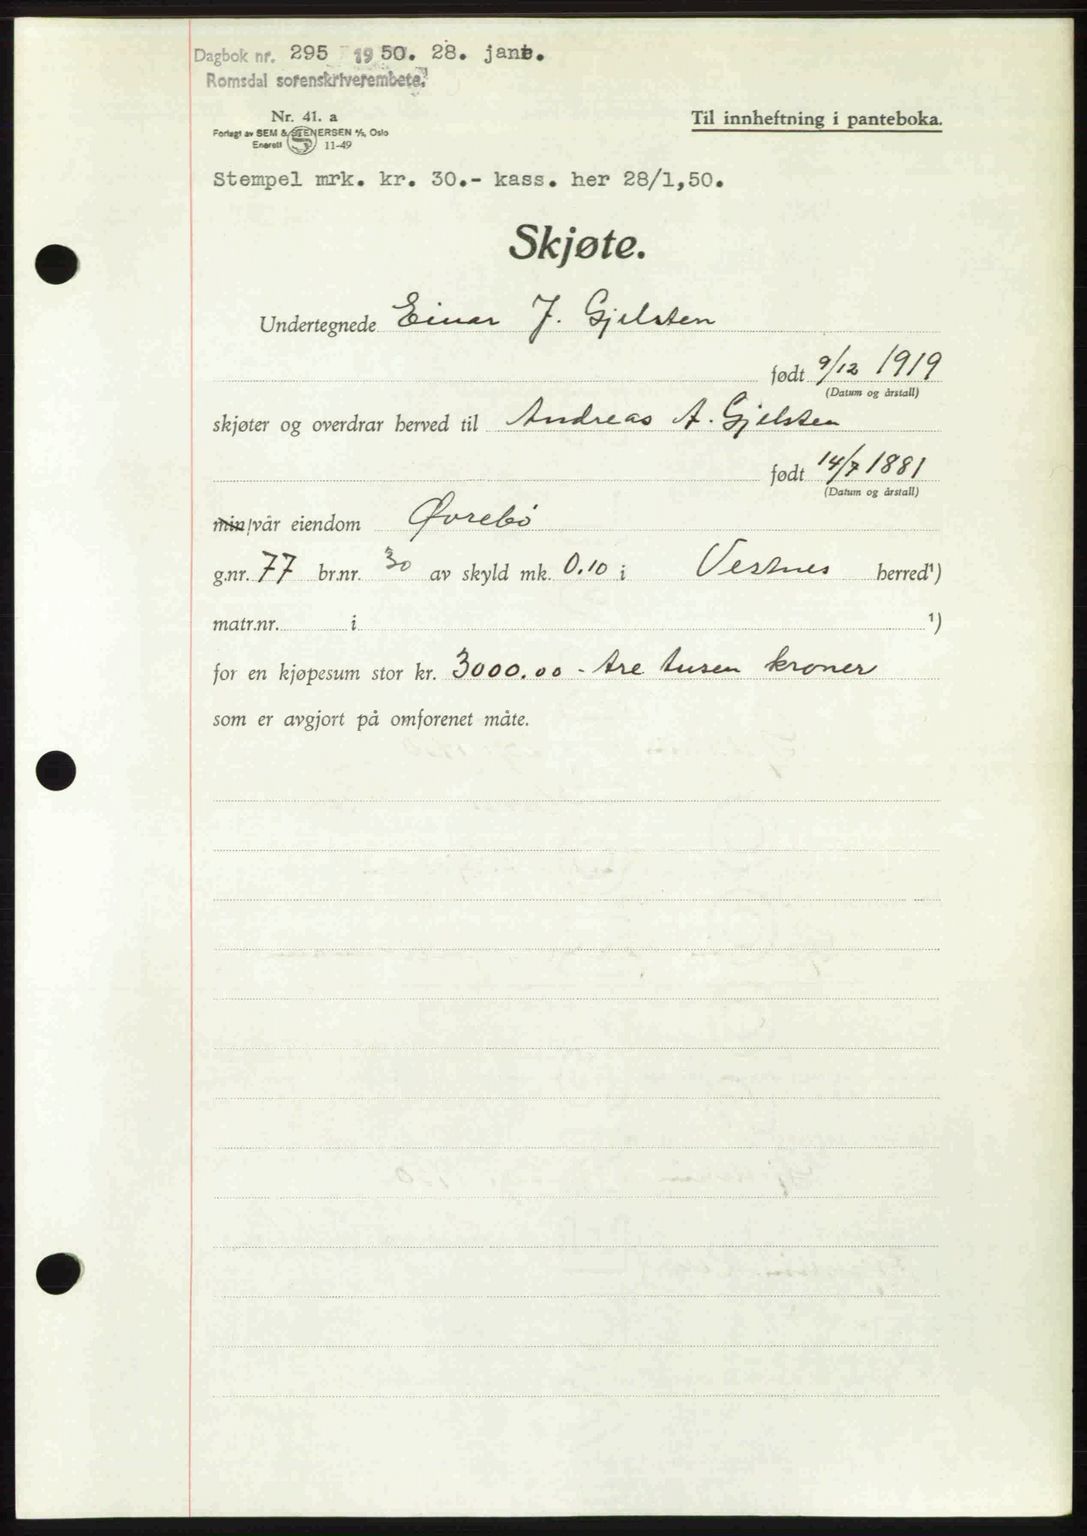 Dagbok nr. 295 1950. 28. jan.
Romsdal sorenskriverembete.
Nr. 41. a
Til innheftning i panteboka.
Forlagt av SEM & STENERSEN A/S, Oslo
Enerett 11-49
Stempel mrk. kr. 30.- kass. her 28/1,50.
Skjøte.
Undertegnede Einar J. Gjelsten
født 9/12 1919
(Datum og årstall)
skjøter og overdrar herved til Andreas A. Gjelsten
født 14/7 1881
(Datum og årstall)
min/vår eiendom Øvrebö
g.nr. 77 br.nr. 30 av skyld mk. 0.10 i Vestnes herred¹)
matr.nr. i ¹)
for en kjøpesum stor kr. 3000.00 - tre tusen kroner
som er avgjort på omforenet måte.